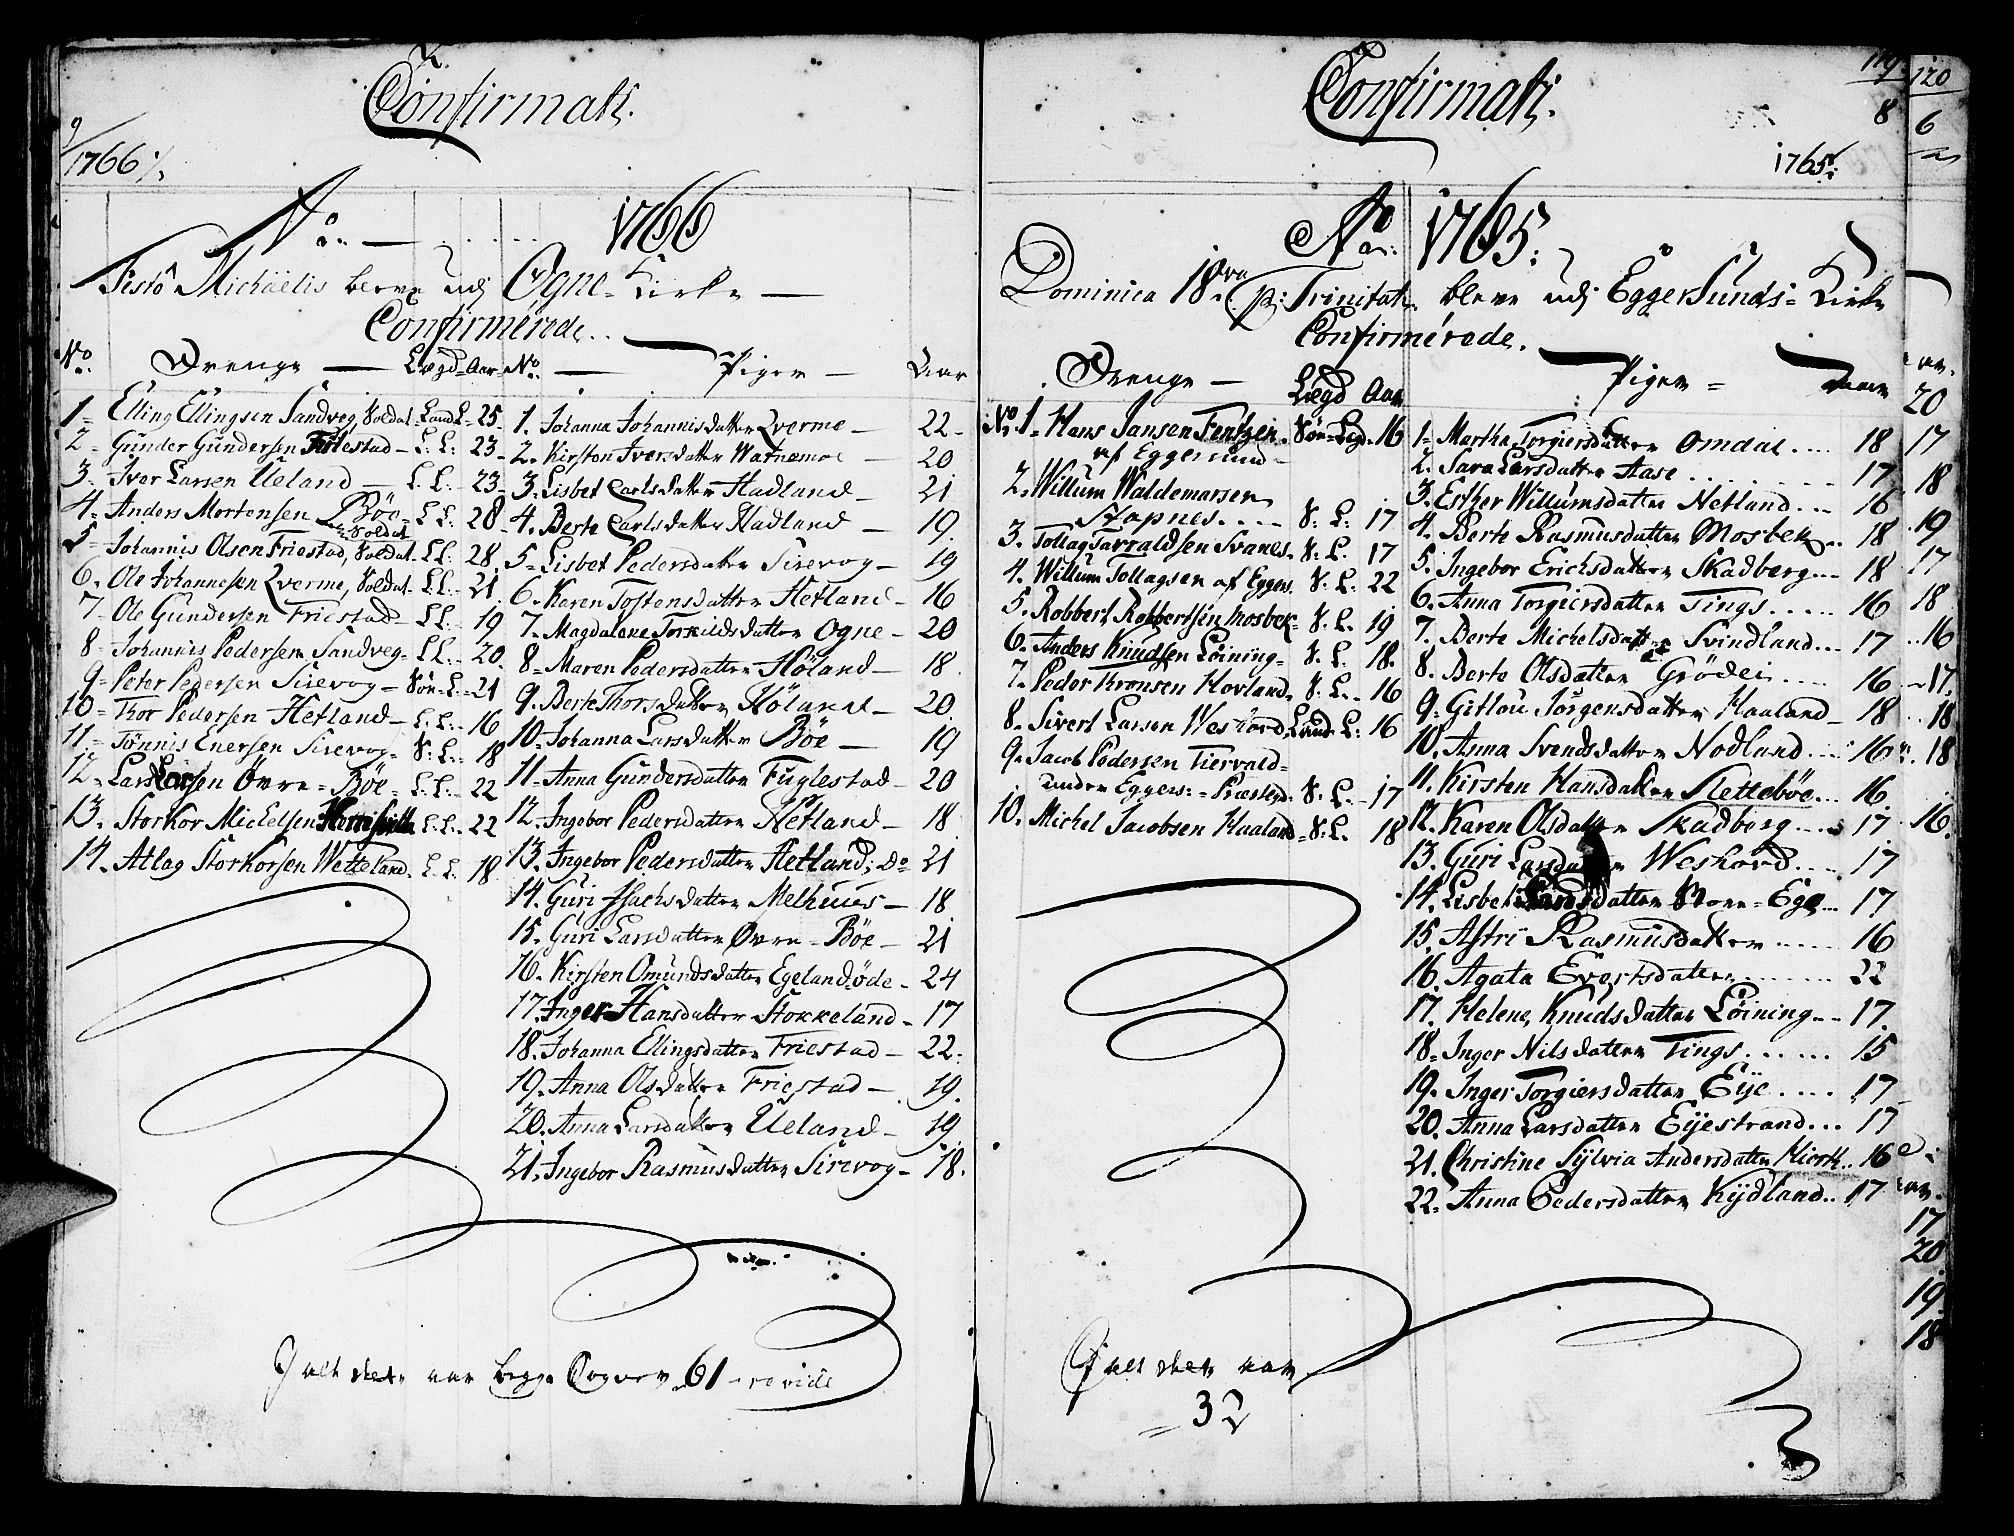 Confirmati.
9
1766
Ao. 1766
Festo Michaëlis bleve udj Ogne Kirke
Confirmerede.
No. Drenge Legd Aar
1 Elling Ellingsen Sandveg, Soldat Land L. 25
2 Gunder Gundersen Friestad L. L. 23
3 Iver Larsen Ueland L. L. 23
4 Anders Mortensen Böe L. L. 28
Soldat
5 Johannis Olsen Friestad, Soldat L. L. 28
6. Ole Johannesen Qverme, Soldat L. L. 21
7 Ole Gundersen Friestad L. L. 19
8 Johannis Pedersen Sandveg L. L. 20
9 Peter Pedersen Sirevog Söe L. 21
10 Tor Pedersen Hetland L. L. 16
11 Tönnis Enersen Sirevog S. L. 18
12 Lars Larsen Övre Böe L. L. 22
13. Storkor Michelsen L. L. 22
14. Atlag Storkorsen Wetteland L. L. 18
No. Piger Aar
1. Johanna Johannisdatter Qverme 22
2. Kirsten Iversdatter Warnemoe 20
3. Lisbet Carlsdatter Hadland 21
4. Berte Carlsdatter Hadland 19
5 Lisbet Pedersdatter Sirevog 19
6. Karen Tostensdatter Hetland 16
7. Magdalene Torkildsdatter Ogne 20
8 Maren Pedersdatter Höland 18
9. Berte Thorsdatter Höland 20
10. Johanna Larsdatter Böe 19
11. Anna Gundersdatter Fuglestad 20
12. Ingebor Pedersdatter Hetland 18
13. Ingebor Pedersdatter Hetland; Do 21
14. Guri Isachsdatter Melhuus 18
15. Guri Larsdatter Övre Böe 21
16. Kirsten Omundsdatter Egelandsøde 24
17. Inger Hansdatter Stokkeland 17
18. Johanna Ellingsdatter Friestad 22
19. Anna Olsdatter Friestad 19
20. Anna Larsdatter Ueland 19
21. Ingebor Rasmusdatter Sirevog 18.
I alt dette aar begge Sogner 61
Confirmati.
119
8
1765
Ao. 1765.
Dominica 18va p: Trinitat. bleve udj EggerSunds Kirke
Confirmerede.
Drenge Legd Aar
No 1 Hans Jansen Fentzen Söe Leg. 16
af Eggersund
2. Willum Waldemarsen
Stapnes S. L. 17
3. Tollag Tarraldsen Svanes S. L. 17
4. Willum Tollagsen af Eggers. S. L. 22
5. Robbert Robbertsen Mosbek S. L. 19
6. Anders Knudsen Löining S. L. 18.
7. Peder Tronsen Hovland S. L. 16
8. Sivert Larsen Weshord Land L. 16
9. Jacob Pedersen Tiervald
under Eggers. Præstegd. S. L. 17
10. Michel Jacobsen Haaland S. L. 18
Piger Aar
1. Martha Torgiersdatter Omdal 18
2. Sara Larsdatter Aase 17
3. Esther Willumsdatter Netland 16
4. Berte Rasmusdatter Mosbek 18
5. Ingebor Erichsdatter Skadberg 18
6. Anna Torgiersdatter Tings 16
7. Berte Michelsdatter Svindland 17
8. Berte Olsdatter Grödei 16
9. Gitlau Jörgensdatter Haaland 18
10. Anna Svendsdatter Nodland 16
11. Kirsten Hansdatter Slettebö 16
12. Karen Olsdatter Skadberg 17
13. Guri Larsdatter Weshord 17
14. Lisbet Larsdatter Store Ege 17
15. Astri Rasmusdatter 16
16. Agata Evertsdatter 22
17. Helene Knudsdatter Löining 17.
18. Inger Nilsdatter Tings 15
19. Inger Torgiersdatter Eije 17
20. Anna Larsdatter Eijestrand 17
21. Christine Sylvia Andersdatter Kiork 16
22. Anna Pedersdatter Kydland 17
I alt dette aar
32
120
6
20
17
18
19
17
18
16
17.
18
18
16.
17
20
19
18